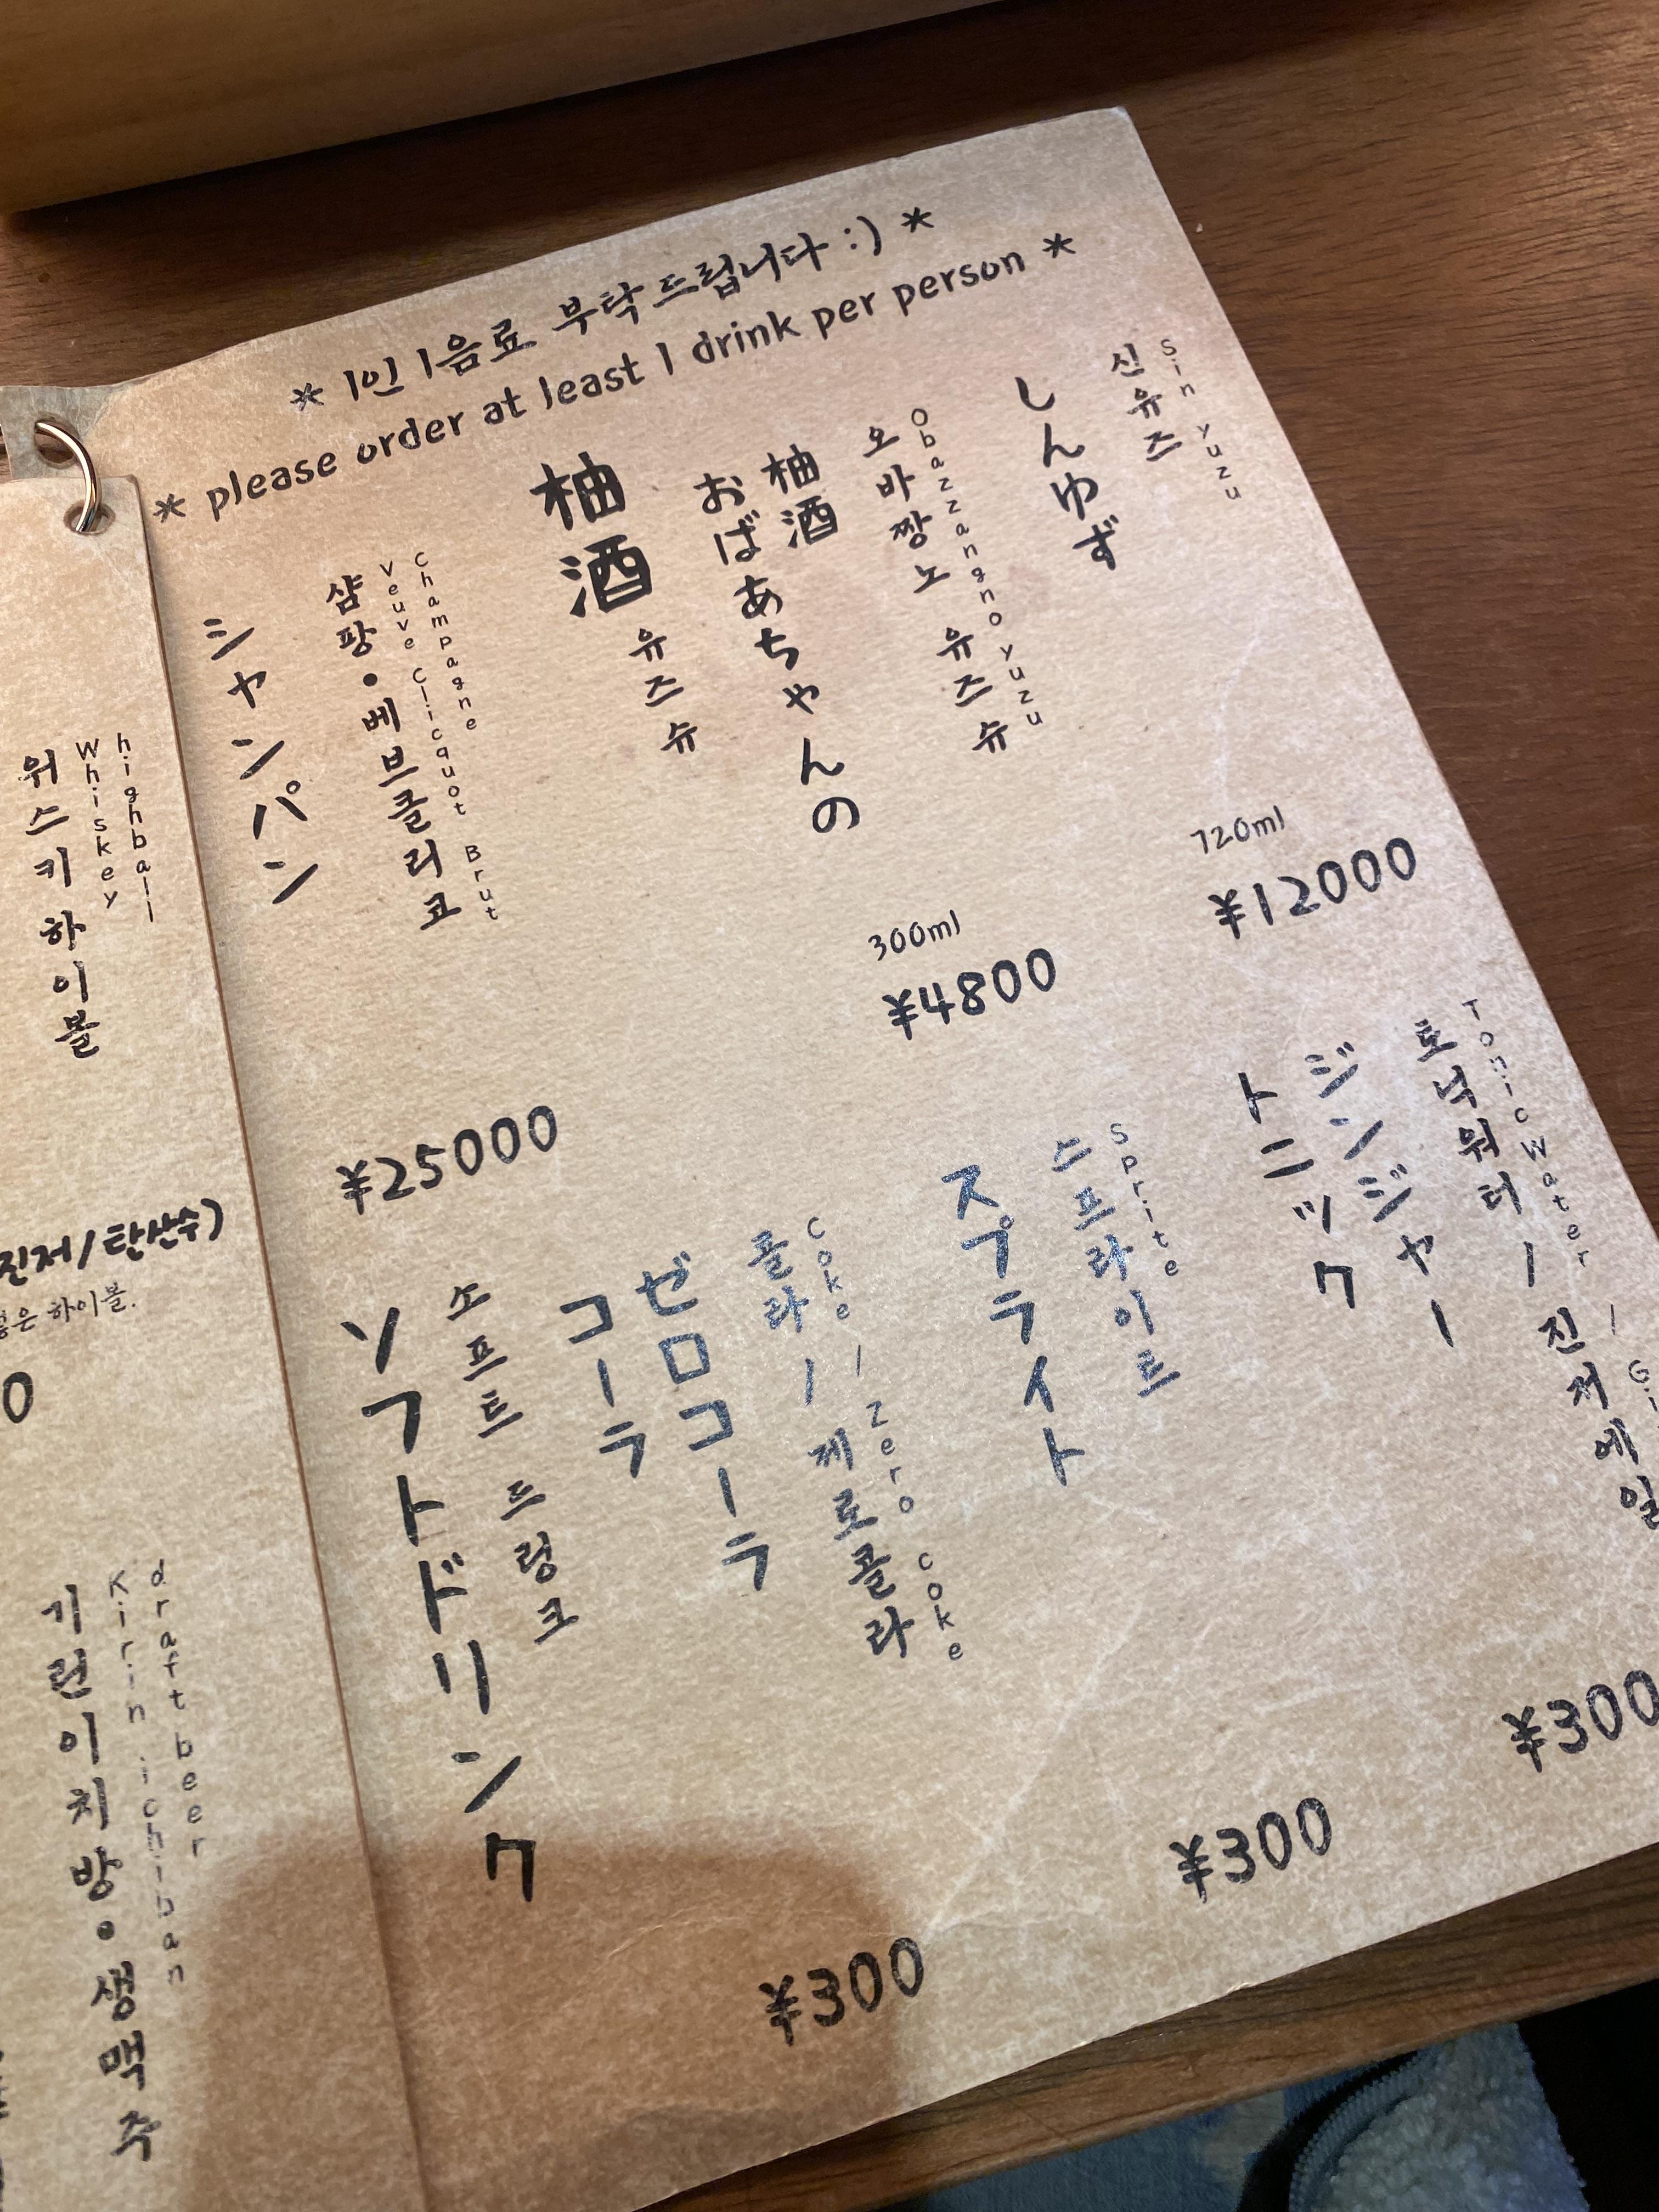 * 1인 1음료 부탁드립니다 :) *
* please order at least 1 drink per person *
シャンパン
샴팡·베브클리코
Veuve Clicquot Brut
Champagne
¥25000
柚酒
유즈슈
おばあちゃんの
柚酒
오바짱노 유즈슈
Obazzangno yuzu
300ml
¥4800
しんゆず
신유즈
Sin yuzu
720ml
¥12000
ソフトドリンク
소프트 드링크
コーラ
ゼロコーラ
콜라 / 제로콜라
Coke / Zero coke
¥300
スプライト
스프라이트
Sprite
¥300
トニック
ジンジャー
토닉워터 / 진저에일
Tonic Water / Gi
¥300
위스키하이볼
Whiskey
highball
진저/탄산수)
은 하이볼.
0
기린이치방·생맥주
Kirin ichiban
draft beer